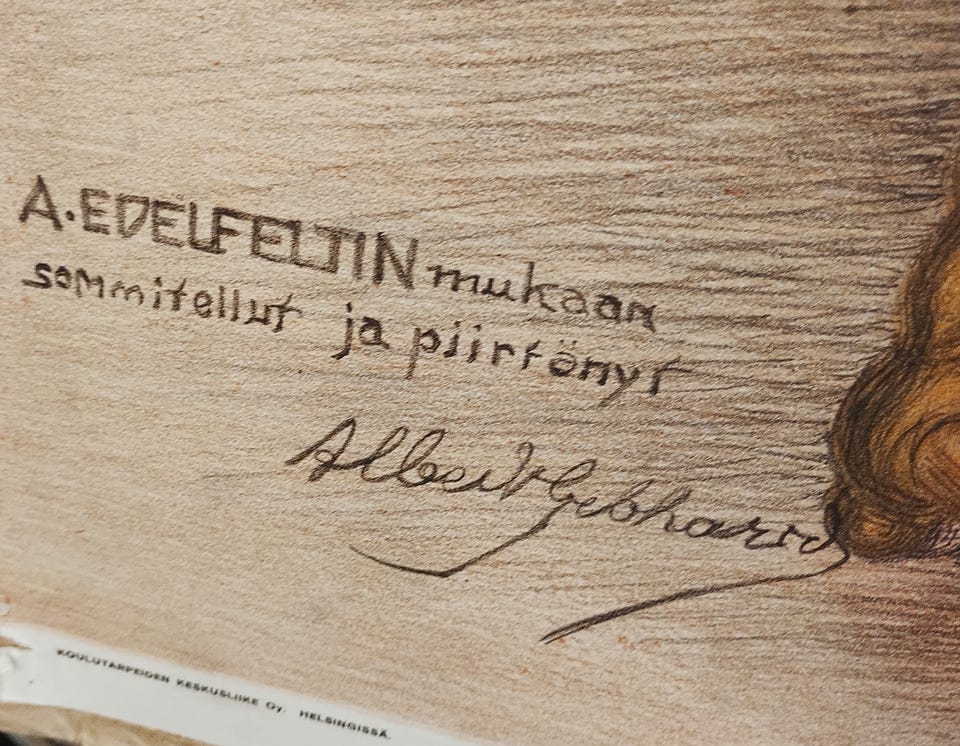 A. EDELFELTIN mukaan
sommitellut ja piirtänyt
Albert Gebhard
KOULUTARPEIDEN KESKUSLIIKE Oy. HELSINGISSÄ.